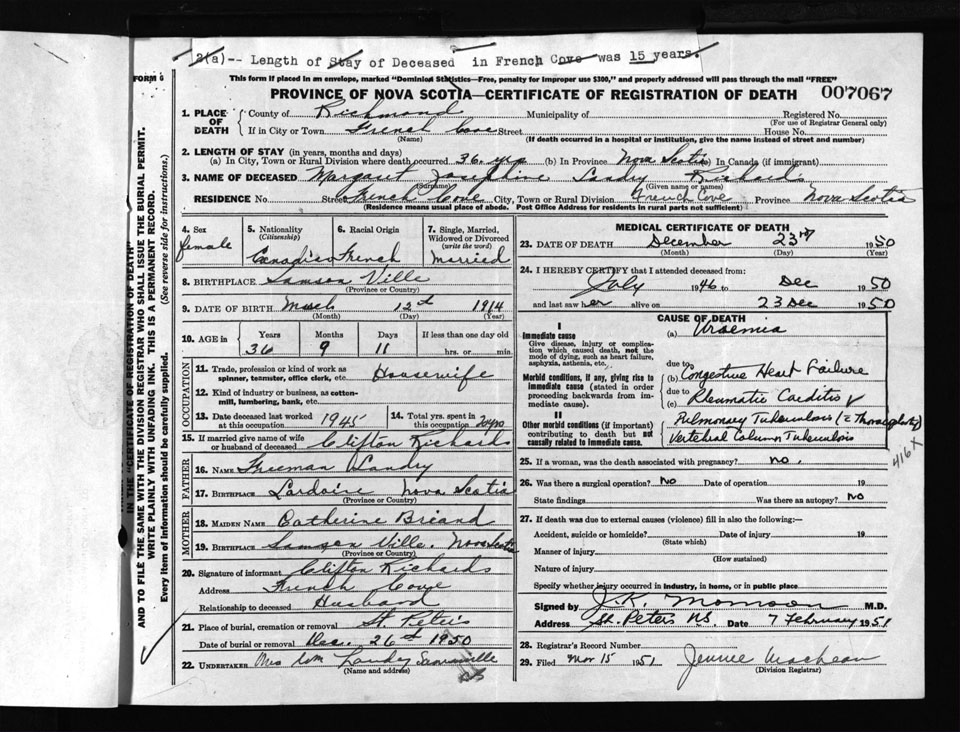 2(a)-- Length of Stay of Deceased in French Cove was 15 years.
FORM 6
This form if placed in an envelope, marked "Dominion Statistics—Free, penalty for improper use $300," and properly addressed will pass through the mail "FREE"
PROVINCE OF NOVA SCOTIA—CERTIFICATE OF REGISTRATION OF DEATH 007067
IN THE "CERTIFICATE OF REGISTRATION OF DEATH"
AND TO FILE THE SAME WITH THE DIVISION REGISTRAR WHO SHALL ISSUE THE BURIAL PERMIT.
WRITE PLAINLY WITH UNFADING INK. THIS IS A PERMANENT RECORD.
Every item of information should be carefully supplied. (See reverse side for instructions.)
1. PLACE OF DEATH
County of Richmond Municipality of Registered No.
(For use of Registrar General only)
If in City or Town French Cove Street House No.
(Name) (If death occurred in a hospital or institution, give the name instead of street and number)
2. LENGTH OF STAY (in years, months and days)
(a) In City, Town or Rural Division where death occurred 36 yrs (b) In Province Nova Scotia In Canada (if immigrant)
3. NAME OF DECEASED Margaret Josephine Landry Richards
(Surname) (Given name or names)
RESIDENCE No. Street French Cove City, Town or Rural Division French Cove Province Nova Scotia
(Residence means usual place of abode. Post Office Address for residents in rural parts not sufficient)
4. Sex
female
5. Nationality
(Citizenship)
Canadian
6. Racial Origin
French
7. Single, Married, Widowed or Divorced
(write the word)
Married
8. BIRTHPLACE Samson Ville
(Province or Country)
9. DATE OF BIRTH March 12th 1914
(Month) (Day) (Year)
10. AGE in
Years Months Days If less than one day old
36 9 11 hrs. or min.
OCCUPATION
11. Trade, profession or kind of work as spinner, teamster, office clerk, etc. Housewife
12. Kind of industry or business, as cotton-mill, lumbering, bank, etc.
13. Date deceased last worked at this occupation 1945
14. Total yrs. spent in this occupation 20 yrs
15. If married give name of wife or husband of deceased Clifton Richards
FATHER
16. NAME Freeman Landry
17. BIRTHPLACE Nova Scotia
(Province or Country)
MOTHER
18. MAIDEN NAME Catherine Briand
19. BIRTHPLACE Samson Ville. Nova Scotia
(Province or Country)
20. Signature of informant Clifton Richards
Address French Cove
Relationship to deceased Husband
21. Place of burial, cremation or removal St Peter's
Date of burial or removal Dec. 26th 1950
22. UNDERTAKER Landry
(Name and address)
MEDICAL CERTIFICATE OF DEATH
23. DATE OF DEATH December 23rd 1950
(Month) (Day) (Year)
24. I HEREBY CERTIFY that I attended deceased from:
July 1946 to Dec 1950
and last saw her alive on 23 Dec 1950
CAUSE OF DEATH
I
Immediate cause
Give disease, injury or complication which caused death, not the mode of dying, such as heart failure, asphyxia, asthenia, etc.
(a) Uraemia
due to
Morbid conditions, if any, giving rise to immediate cause (stated in order proceeding backwards from immediate cause).
(b) Congestive Heart Failure
due to
(c) Rheumatic Carditis
II
Other morbid conditions (if important) contributing to death but not causally related to immediate cause.
Pulmonary Tuberculosis
Vertebral Column Tuberculosis
416 x
25. If a woman, was the death associated with pregnancy? no.
26. Was there a surgical operation? No Date of operation 19
State findings Was there an autopsy? No
27. If death was due to external causes (violence) fill in also the following:—
Accident, suicide or homicide? Date of injury 19
(State which)
Manner of injury
(How sustained)
Nature of injury
Specify whether injury occurred in industry, in home, or in public place
Signed by M.D.
Address St. Peters NS. Date 7 February 1951
28. Registrar's Record Number
29. Filed Mar 15 1951 Jennie
(Division Registrar)